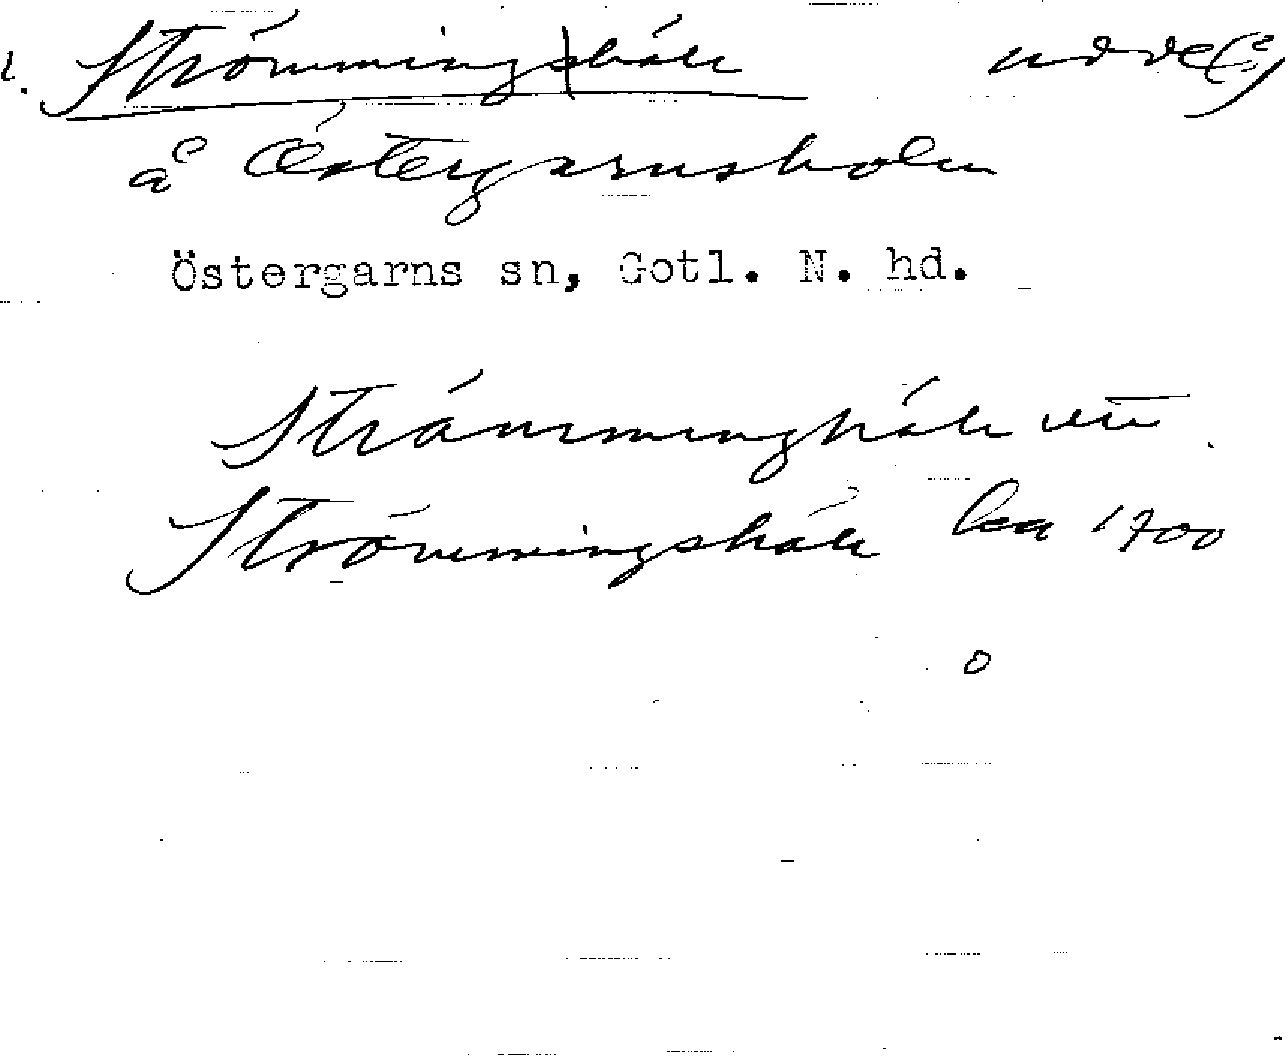 1. Strömmingshåle
å Östergarnsholm
Östergarns sn, Gotl. N. hd.
Strämminghåle
Strömmingshåle 1700